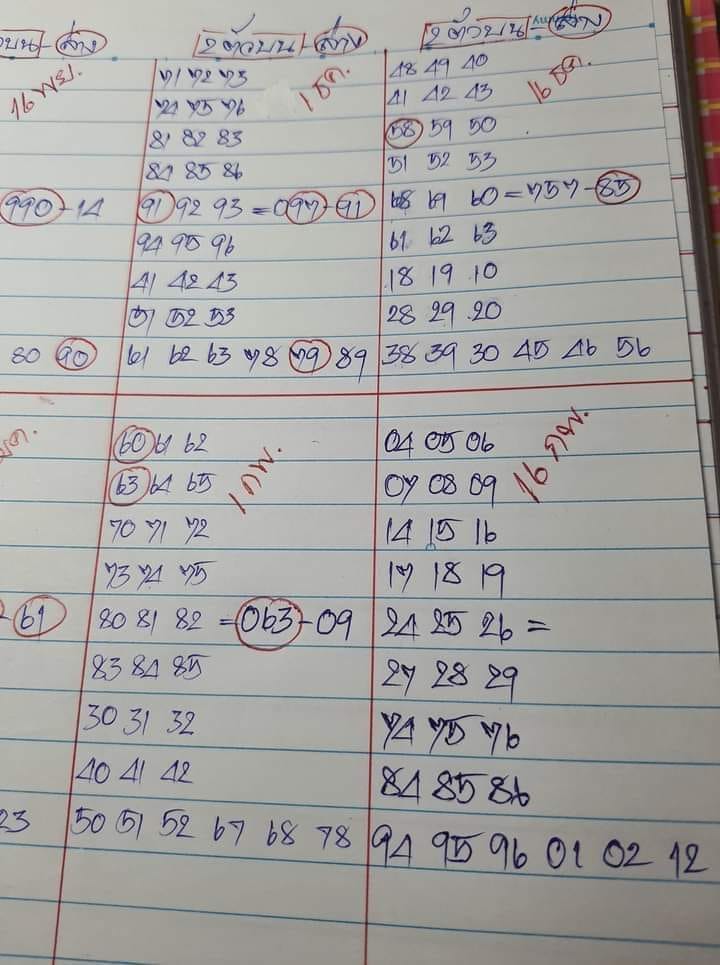 บน - ล่าง
2 ตัวบน - ล่าง
2 ตัวบน - ล่าง
16 พย.
71 72 73
74 75 76
81 82 83
84 85 86
1 ธค.
990 - 14
91 92 93 = 097 - 91
94 95 96
41 42 43
51 52 53
80 90
61 62 63 78 79 89
48 49 40
41 42 43
16 ธค.
58 59 50
51 52 53
68 69 60 = 757 - 85
61 62 63
18 19 10
28 29 20
38 39 30 45 46 56
60 61 62
63 64 65
1 กพ.
70 71 72
73 74 75
- 61
80 81 82 = 063 - 09
83 84 85
30 31 32
40 41 42
23
50 51 52 67 68 78
04 05 06
07 08 09
16 กพ.
14 15 16
17 18 19
24 25 26 =
27 28 29
74 75 76
84 85 86
94 95 96 01 02 12